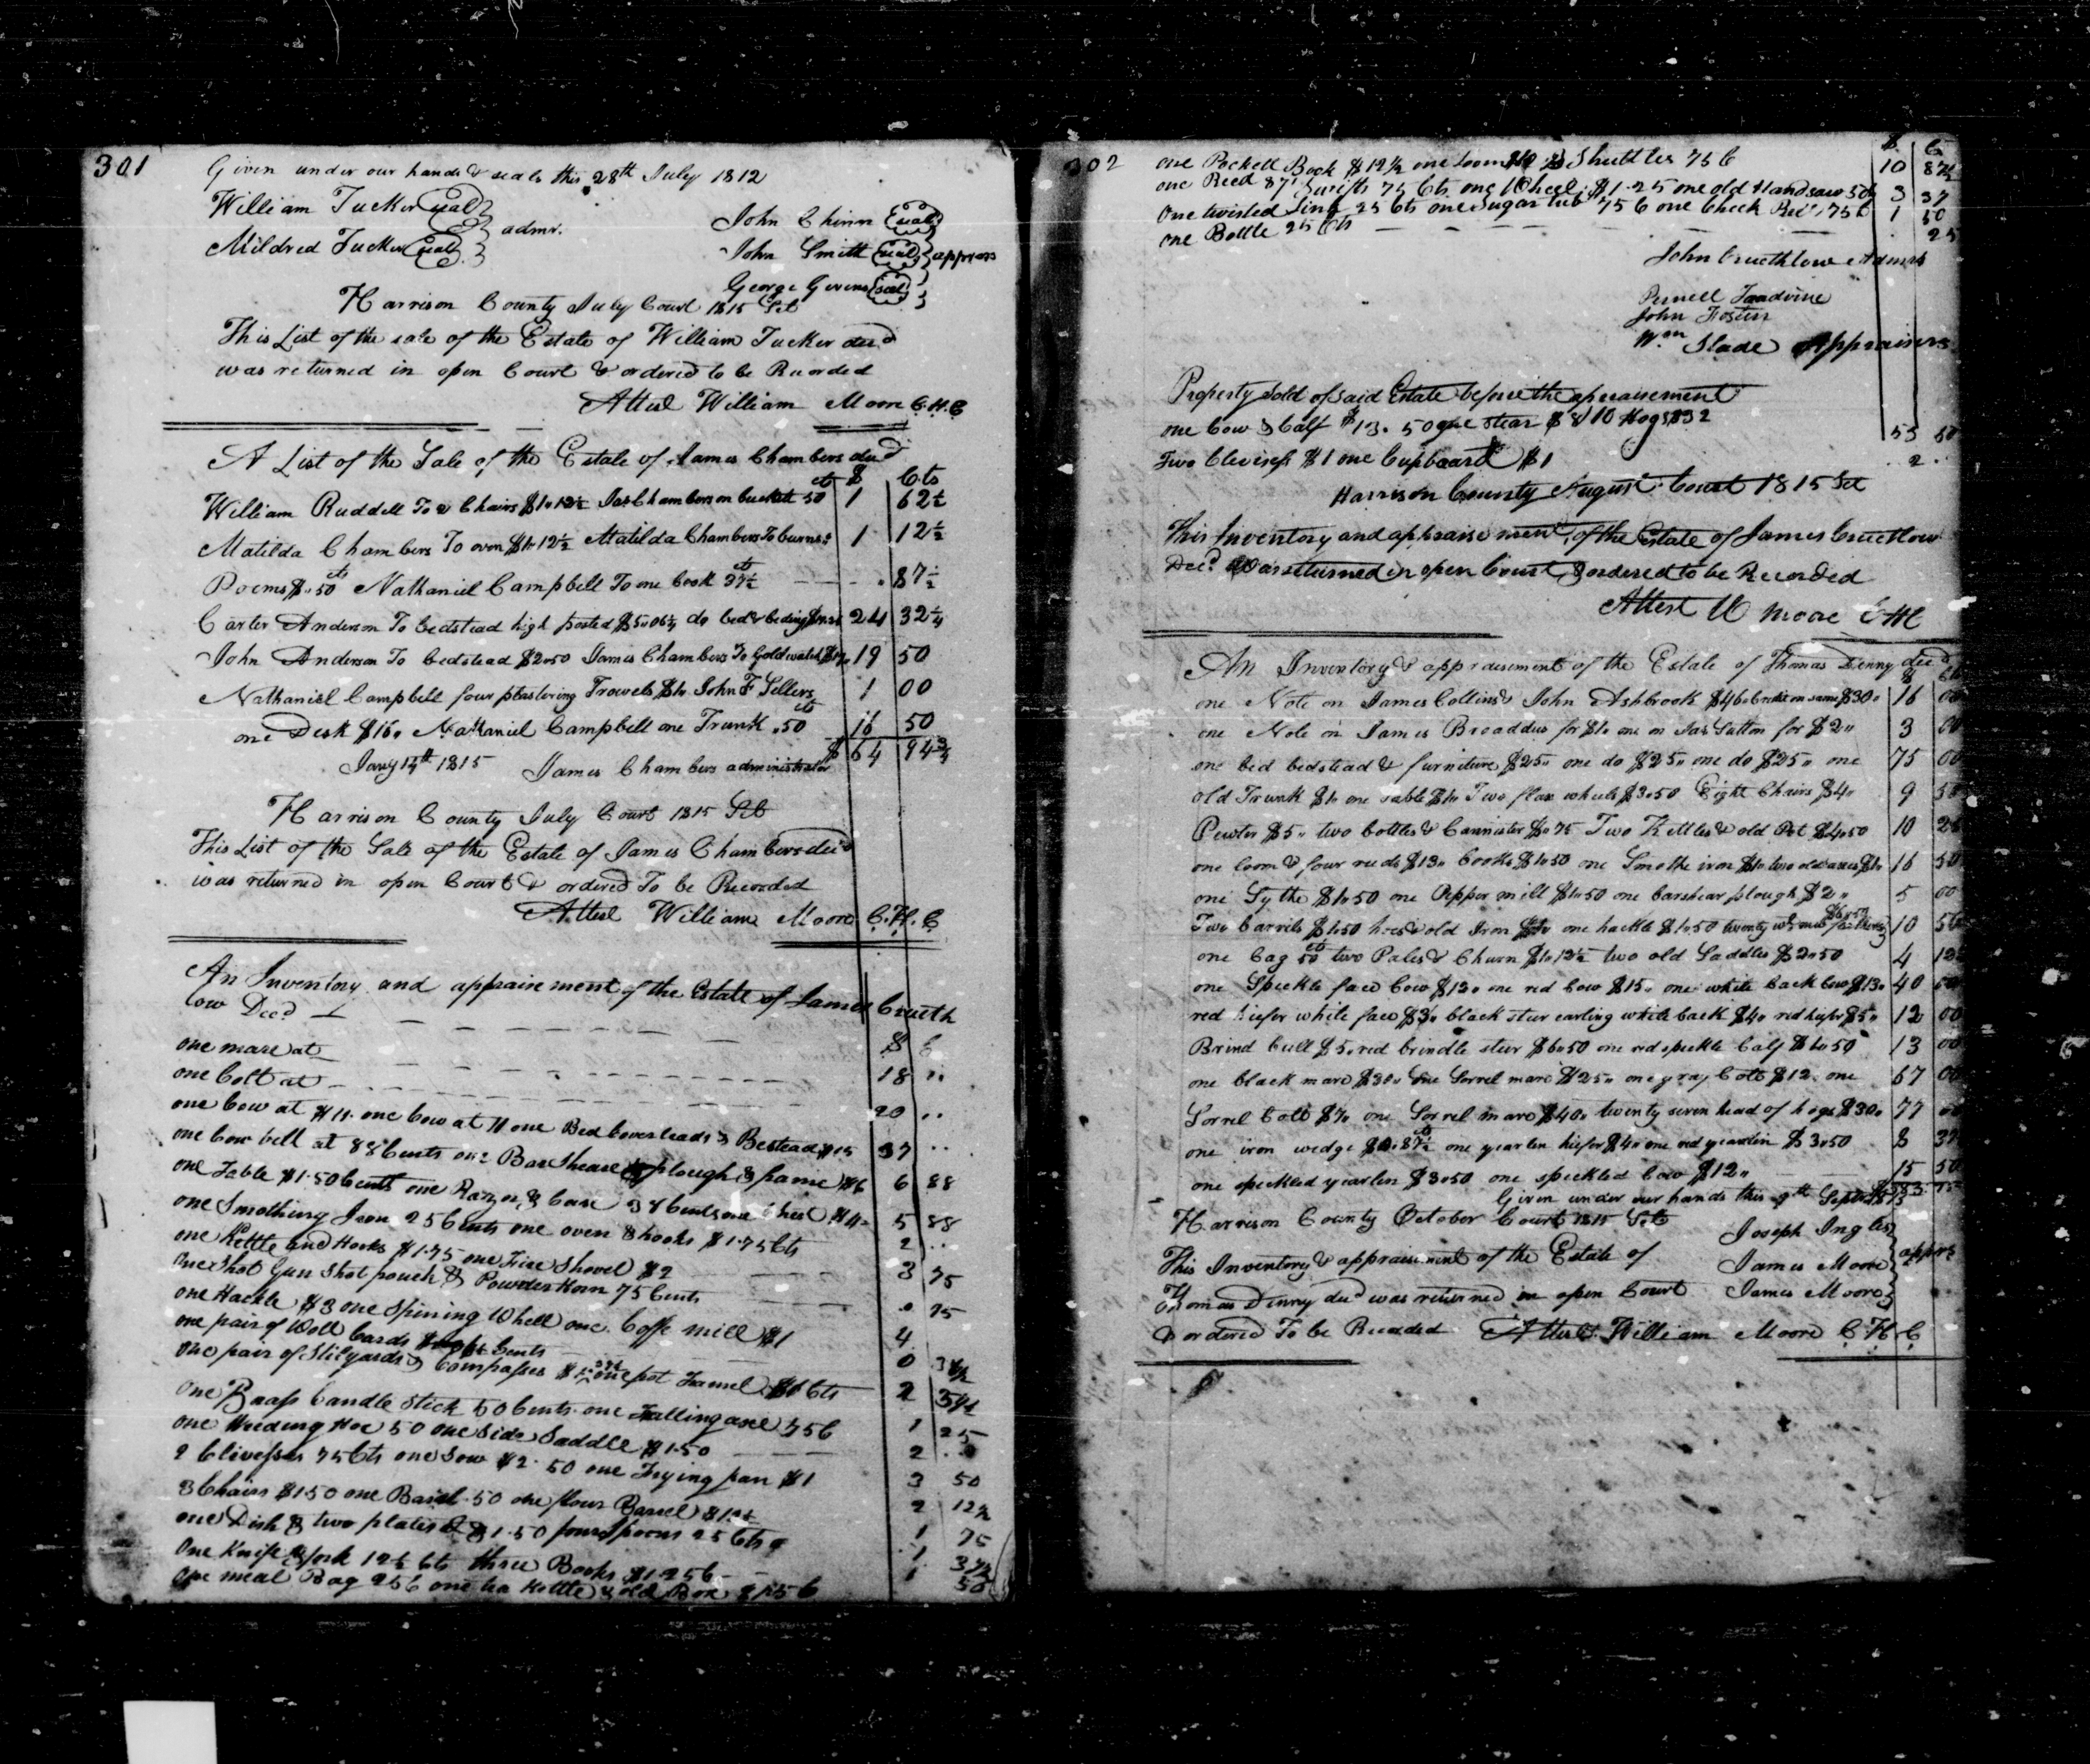 301
Given under our hands & seals this 28th July 1812
William Tucker seal
Mildred Tucker seal } admr.
John Chinn seal
John Smith seal } apprs
George Givens seal
Harrison County July Court 1815 Sct
This List of the sale of the Estate of William Tucker decd
was returned in open Court & ordered to be Recorded
Attest William Moore C.H.C
A List of the Sale of the Estate of James Chambers decd
$ Cts
William Ruddell To 2 Chairs $1"12½ Jas Chambers on bucket 50 cts 1 62½
Matilda Chambers To oven $1"12½ Matilda Chambers To burns's 1 12½
Poems $"50 cts Nathaniel Campbell To one book 37½ cts — — 87½
Carter Anderson To bedstead high posted $5"06¼ do bed & beding 24 32¼
John Anderson To bedstead $2"50 James Chambers To Gold watch $17" 19 50
Nathaniel Campbell four plastering Trowels $1" John F Sellers 1 00
one Desk $16" Nathaniel Campbell one Trunk "50 cts 16 50
$ 64 94¾
Jany 14th 1815 James Chambers administrator
Harrison County July Court 1815 Sct
This List of the Sale of the Estate of James Chambers decd
was returned in open Court & ordered To be Recorded
Attest William Moore C.H.C
An Inventory and appraisement of the Estate of James Crueth
low Decd
$ C
one mare at 18 "
one Colt at 20 "
one Cow at $11. one Cow at 11 one Bed Coverleads & Bestead $15 37 "
one Cow bell at 88 Cents one Bar Sheare plough & frame $6 6 88
one Table $1.50 Cents one Razzor & Case 38 Cents one Chest $4 5 88
one Smothing Iron 25 Cents one oven & hooks $1.75 Cts 2 "
one Kettle and Hooks $1.75 one Fire Shovel $2 3 75
One Shot Gun Shot pouch & Powder Horn 75 Cents . 75
one Hackle $3 one Spining Whell one Coffe mill $1 4
one pair of Woll Cards Cents 0
one pair of Stilyards & Compasses one pot 2
One Brass Candle Stick 50 Cents one Falling axe 75 C 1 25
one Weeding Hoe 50 one Side Saddle $1.50 2
2 Clivesses 75 Cts one Sow $2.50 one Frying pan $1 3 50
3 Chairs $1.50 one Barrel .50 one flour Barrel $ 12½ 2 12½
one Dish & two plates $1.50 four Spoons 25 Cts 1 75
One Knife & fork 12½ Cts three Books $1.25 C 1 37½
one meal Bag 25 C one tea Kettle & old Box $1.25 C 1 50
302
$ C
one Pockett Book $12½ one Loom $10 & Shuttles 75 C 10 87½
one Reed 87 Swifts 75 Cts one Wheel $1.25 one old Handsaw 50 3 37
One twisted Link 25 Cts one Sugar tub 75 C one Check Reel 75 C 1 50
one Bottle 25 Cts . 25
John Cruethlow Admrs
Pernell Taadvine
John Foster
Wm Slade Appraisers
Property sold of said Estate before the apraisement
one Cow & Calf $13.50 one stear $8 10 Hogs $32 53 50
Two Clevises $1 one Cupboard $1 . 2 .
Harrison County August Court 1815 Sct
This Inventory and appraisement of the Estate of James Cruetlow
Decd Was returned in open Court & ordered to be Recorded
Attest W Moore CHC
An Inventory & appraisement of the Estate of Thomas Denny decd
$ Cts
one Note on James Collins & John Ashbrook $46" Credit on same $30" 16 00
one Note on James Broaddus for $1" one on Jas Sutton for $2" 3 00
one bed bedstead & furniture $25" one do $25" one do $25" one 75 00
old Trunk $1" one table $1" Two flax wheels $3"50 Eight Chairs $4" 9 50
Pewter $5" two bottles & Cannister $"75 Two Kettles & old Pot $4"50 10 25
one loom & four reeds $13" books $1"50 one Smothe iron $1" two old axes $1" 16 50
one Sythe $1"50 one Pepper mill $1"50 one barshear plough $2" 5 00
Two barrels $1"50 hoes & old Iron one hackle $1"50 twenty wt new feathers $6"50 10 50
one bag 50 cts two Pales & Churn $1"12½ two old Saddles $2"50 4 12½
one Speckle face Cow $12" one red Cow $15" one white back Cow $13" 40 00
red hiefer white face $3" black steer earling white back $4" red hiefer $5" 12 00
Brind bull $5" red brindle steer $6"50 one red speckle Calf $1"50 13 00
one black mare $30" one Sorrel mare $25" one gray Colt $12" one 67 00
Sorrel Colt $7" one Sorrel mare $40" twenty seven head of hogs $30" 77 00
one iron wedge $0"87½ cts one yearlin hiefer $4" one red yearlin $3"50 8 37
one speckled yearlin $3"50 one speckled Cow $12" 15 50
Given under our hands this 9th Septr
Harrison County October Court 1815 Sct
Joseph Ingles
This Inventory & appraisement of the Estate of James Moore } apprs
Thomas Denny decd was returned in open Court James Moore
& ordered To be Recorded Attest William Moore C.H.C